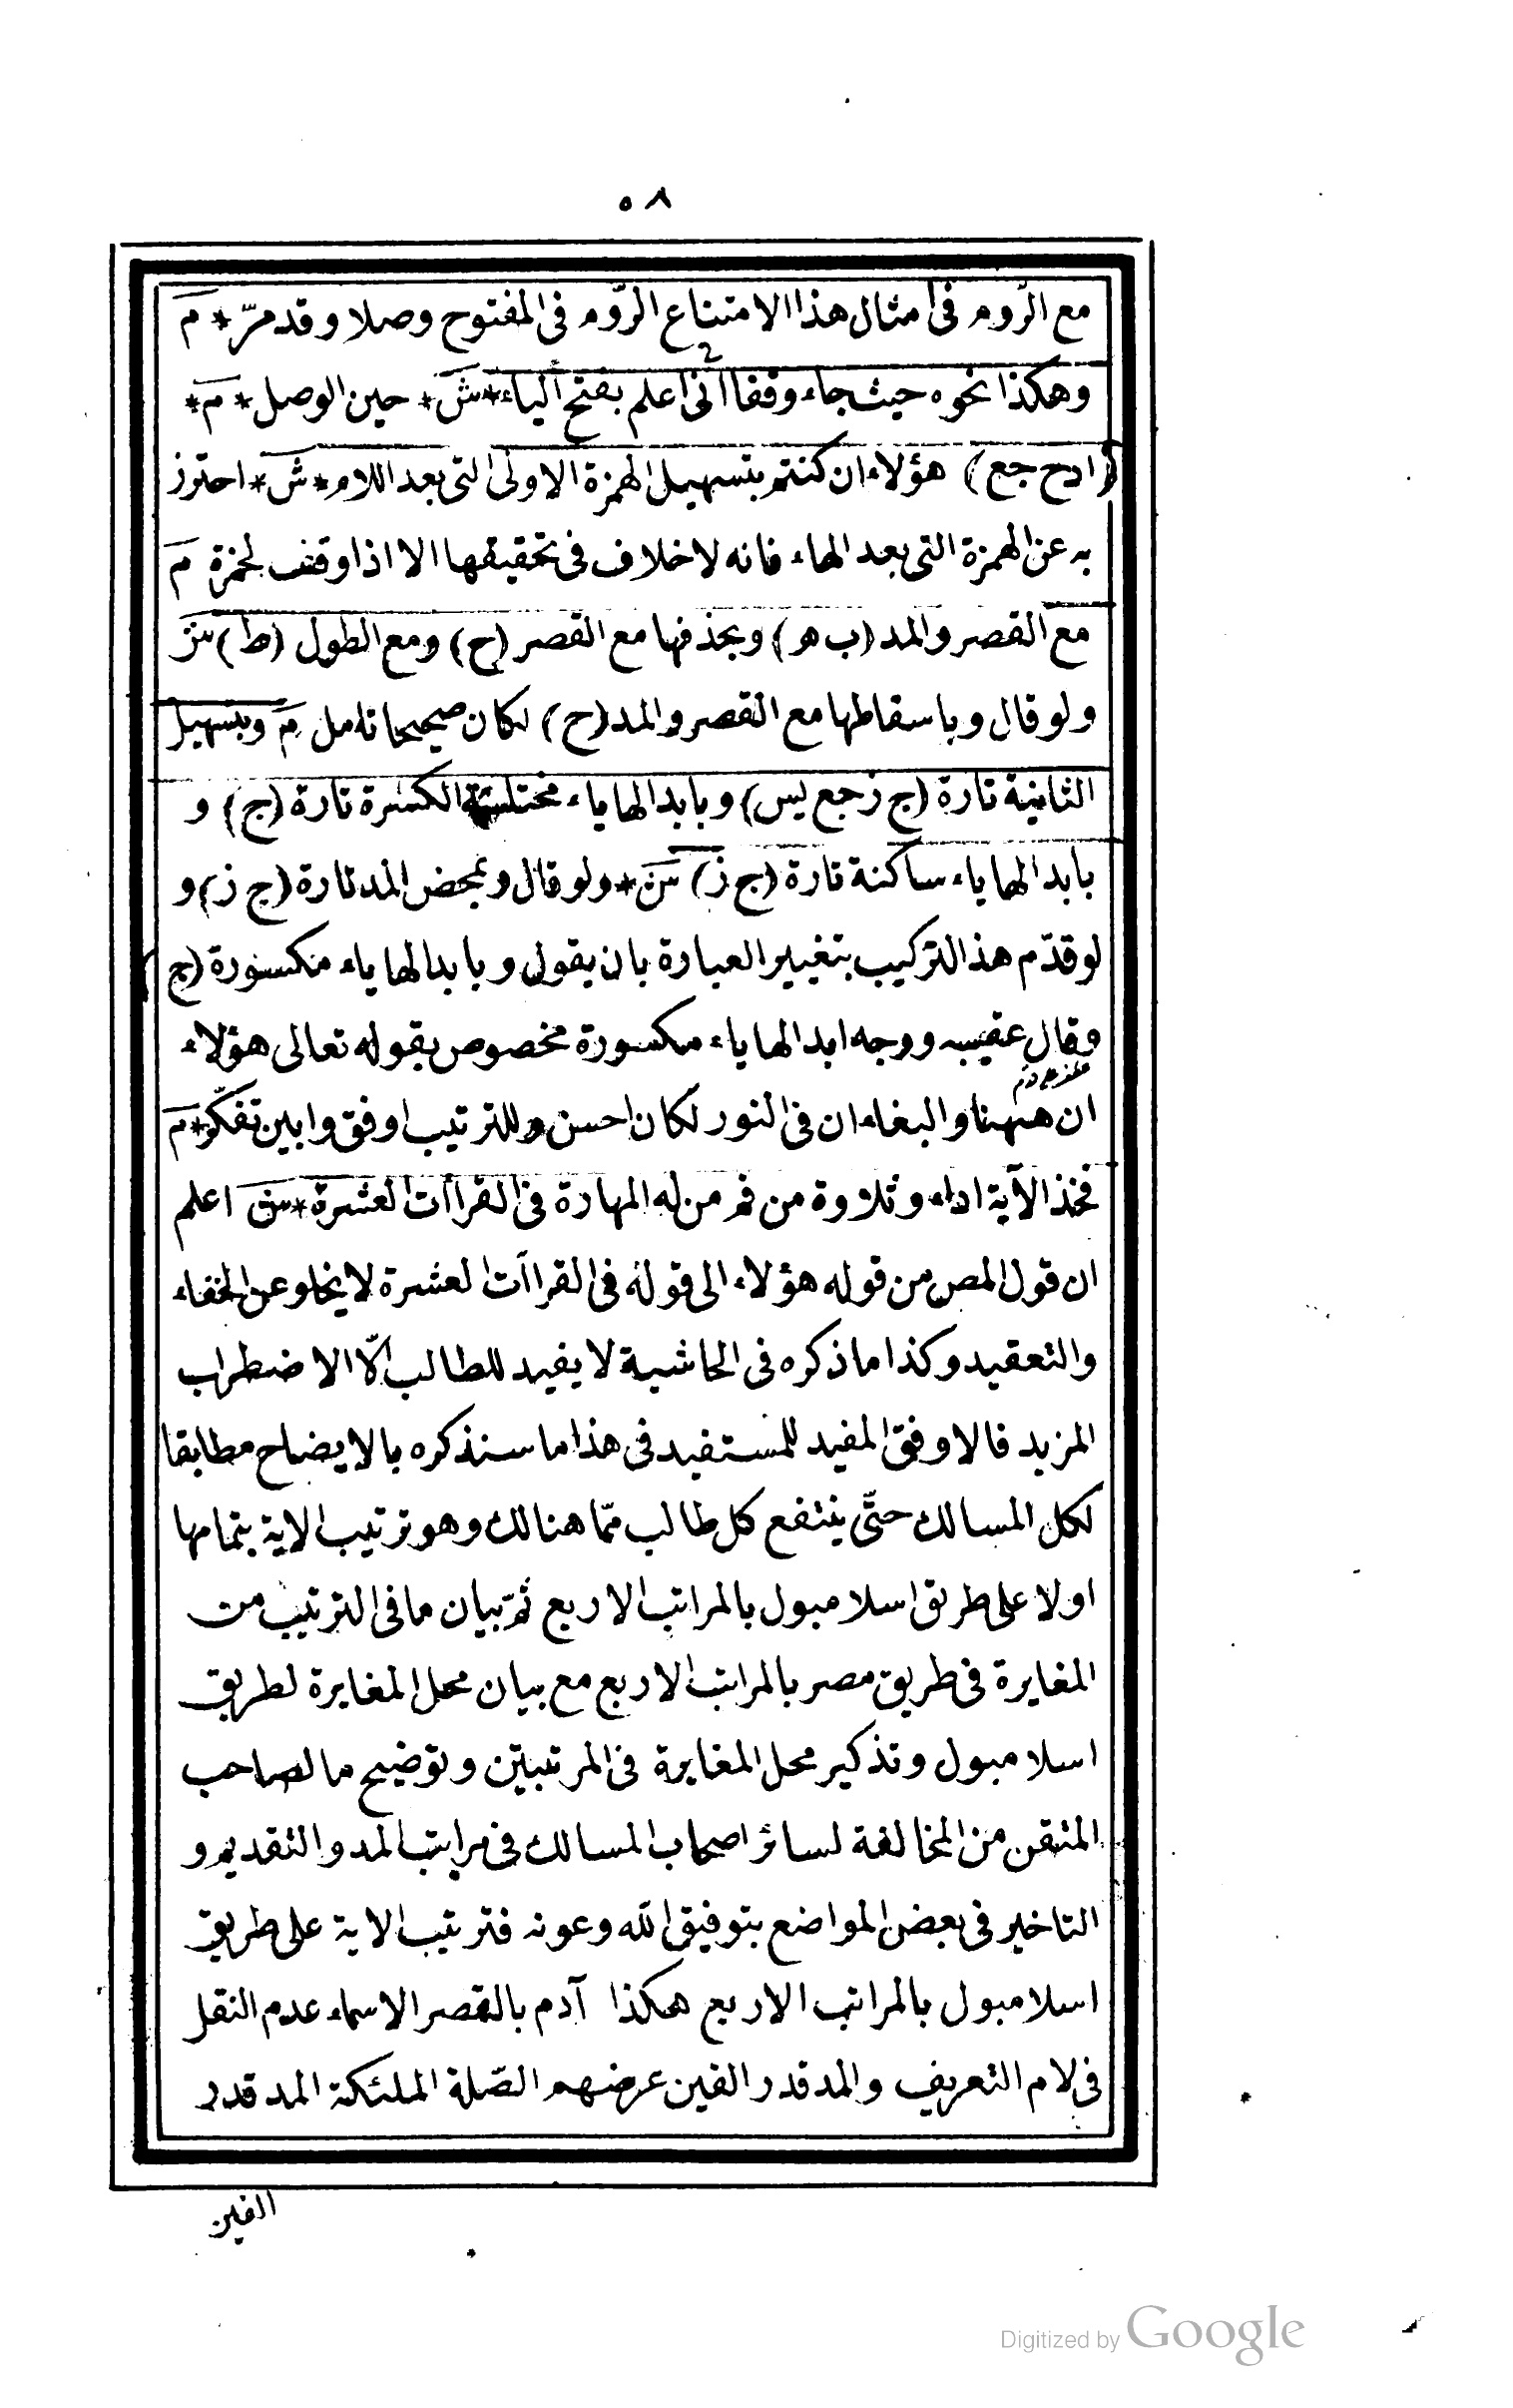 ٥٨
مع الرّوم فى أمثال هذا الامتناع الرّوم فى المفتوح وصلا وقد مرّ * م
وهكذا نحوه حيث جاء وقفا انى اعلم بفتح الياء * ش * حين الوصل * م *
(ادح جع) هؤلاء ان كنتم بتسهيل الهمزة الاولى التى بعد اللام * ش * احترز
به عن الهمزة التى بعد الهاء فانه لا خلاف فى تحقيقها الا اذا وقف لحمزة م
مع القصر والمد (ب هو) وبحذفها مع القصر (ح) ومع الطول (ط) ش
ولو قال وباسقاطها مع القصر والمد (ح) لكان صحيحا تامل م وبتسهيل
الثانية تارة (ج زجع يس) وبابدالها ياء مختلسة الكسرة تارة (ج) و
بابدالها ياء ساكنة تارة (ج ز) ش * ولو قال وبمحض المد تارة (ج ز) و
لو قدّم هذا التركيب بتغيير العبارة بان يقول وبابدالها ياء مكسورة (ج)
وقال عقيبه ووجه ابدالها ياء مكسورة مخصوص بقوله تعالى هؤلاء
ان ههنا والبغاء ان فى النور لكان احسن وللترتيب اوفق وابين تفكّر * م
فخذ الآية اداء وتلاوة من فم من له المهارة فى القراآت العشرة * ش اعلم
ان قول المص من قوله هؤلاء الى قوله فى القراآت العشرة لا يخلو عن الخفاء
والتعقيد وكذا ما ذكره فى الحاشية لا يفيد للطالب الّا الاضطراب
المزيد فالاوفق المفيد للمستفيد فى هذا ما سنذكره بالايضاح مطابقا
لكل المسالك حتّى ينتفع كل طالب ممّا هنالك وهو ترتيب الاية بتمامها
اولا على طريق اسلامبول بالمراتب الاربع ثمّ بيان ما فى الترتيب من
المغايرة فى طريق مصر بالمراتب الاربع مع بيان محل المغايرة لطريق
اسلامبول وتذكير محل المغايرة فى المرتبتين وتوضيح ما لصاحب
المتقن من المخالفة لسائر اصحاب المسالك فى مراتب المد والتقديم و
التاخير فى بعض المواضع بتوفيق الله وعونه فترتيب الاية على طريق
اسلامبول بالمراتب الاربع هكذا آدم بالقصر الاسماء عدم النقل
فى لام التعريف والمد قدر الفين عرضهم الصّلة الملئكة المد قدر
الفين
Digitized by Google